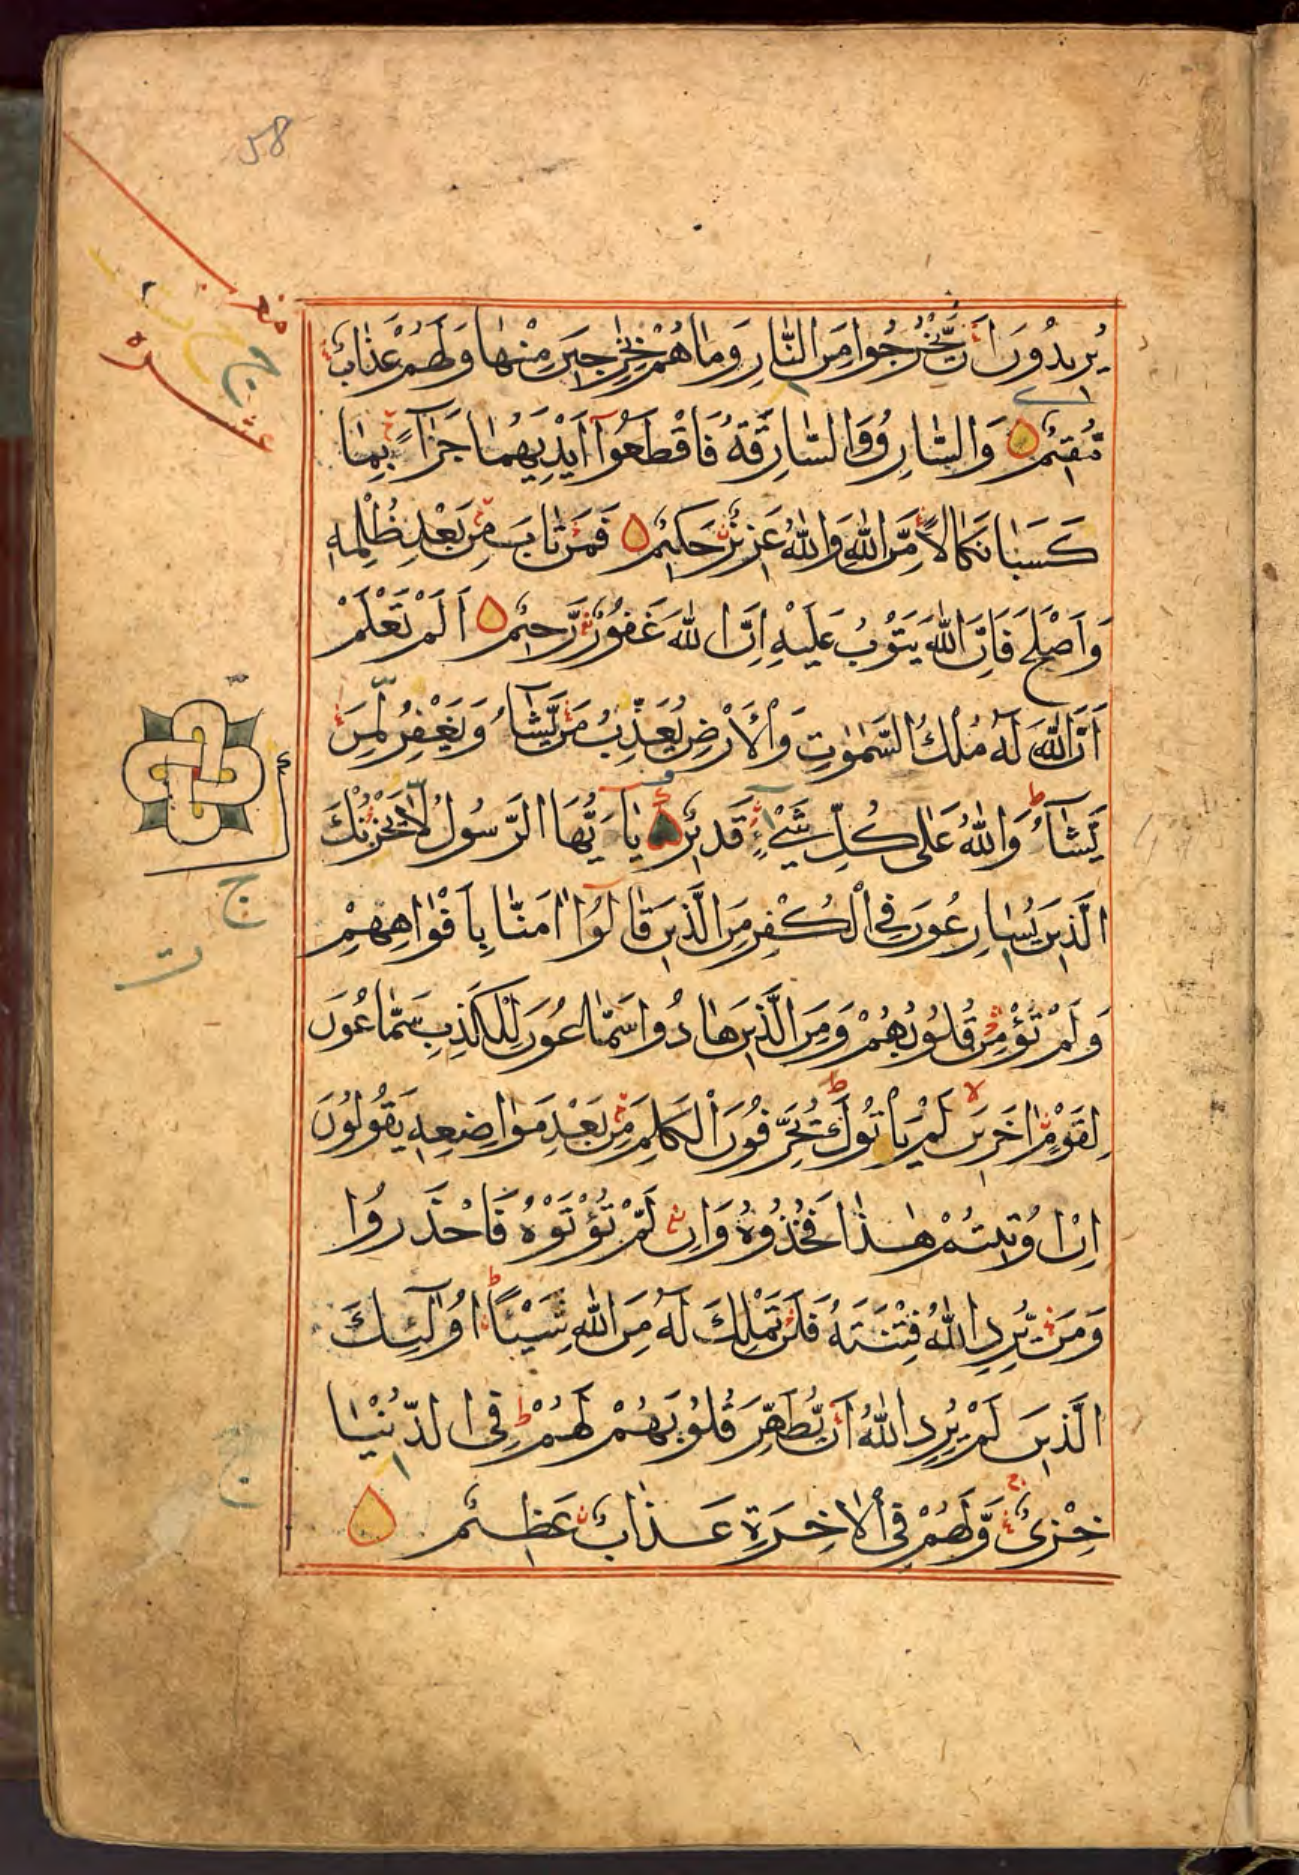 58
يُرِيدُونَ اَنْ يَّخْرُجُوا مِنَ النَّارِ وَمَا هُمْ بِخٰرِجِينَ مِنْهَا وَلَهُمْ عَذَابٌ
مُّقِيمٌ وَالسَّارِقُ وَالسَّارِقَةُ فَاقْطَعُوٓا اَيْدِيَهُمَا جَزَآءً بِمَا
كَسَبَا نَكَالًا مِّنَ اللّٰهِ وَاللّٰهُ عَزِيزٌ حَكِيمٌ فَمَنْ تَابَ مِنْ بَعْدِ ظُلْمِهِ
وَاَصْلَحَ فَاِنَّ اللّٰهَ يَتُوْبُ عَلَيْهِ اِنَّ اللّٰهَ غَفُوْرٌ رَّحِيمٌ اَلَمْ تَعْلَمْ
اَنَّ اللّٰهَ لَهُ مُلْكُ السَّمٰوٰتِ وَالْاَرْضِ يُعَذِّبُ مَنْ يَّشَآءُ وَيَغْفِرُ لِمَنْ
يَّشَآءُ وَاللّٰهُ عَلٰى كُلِّ شَيْءٍ قَدِيرٌ يَآ اَيُّهَا الرَّسُولُ لَا يَحْزُنْكَ
الَّذِينَ يُسَارِعُونَ فِي الْكُفْرِ مِنَ الَّذِينَ قَالُوٓا اٰمَنَّا بِاَفْوَاهِهِمْ
وَلَمْ تُؤْمِنْ قُلُوبُهُمْ وَمِنَ الَّذِينَ هَادُوا سَمَّاعُونَ لِلْكَذِبِ سَمَّاعُونَ
لِقَوْمٍ اٰخَرِينَ لَمْ يَأْتُوكَ يُحَرِّفُوْنَ الْكَلِمَ مِنْ بَعْدِ مَوَاضِعِهِ يَقُولُونَ
اِنْ اُوتِيتُمْ هٰذَا فَخُذُوهُ وَاِنْ لَّمْ تُؤْتَوْهُ فَاحْذَرُوا
وَمَنْ يُّرِدِ اللّٰهُ فِتْنَتَهُ فَلَنْ تَمْلِكَ لَهُ مِنَ اللّٰهِ شَيْئًا اُولٰٓئِكَ
الَّذِينَ لَمْ يُرِدِ اللّٰهُ اَنْ يُّطَهِّرَ قُلُوبَهُمْ لَهُمْ فِي الدُّنْيَا
خِزْيٌ وَّلَهُمْ فِي الْاٰخِرَةِ عَذَابٌ عَظِيمٌ